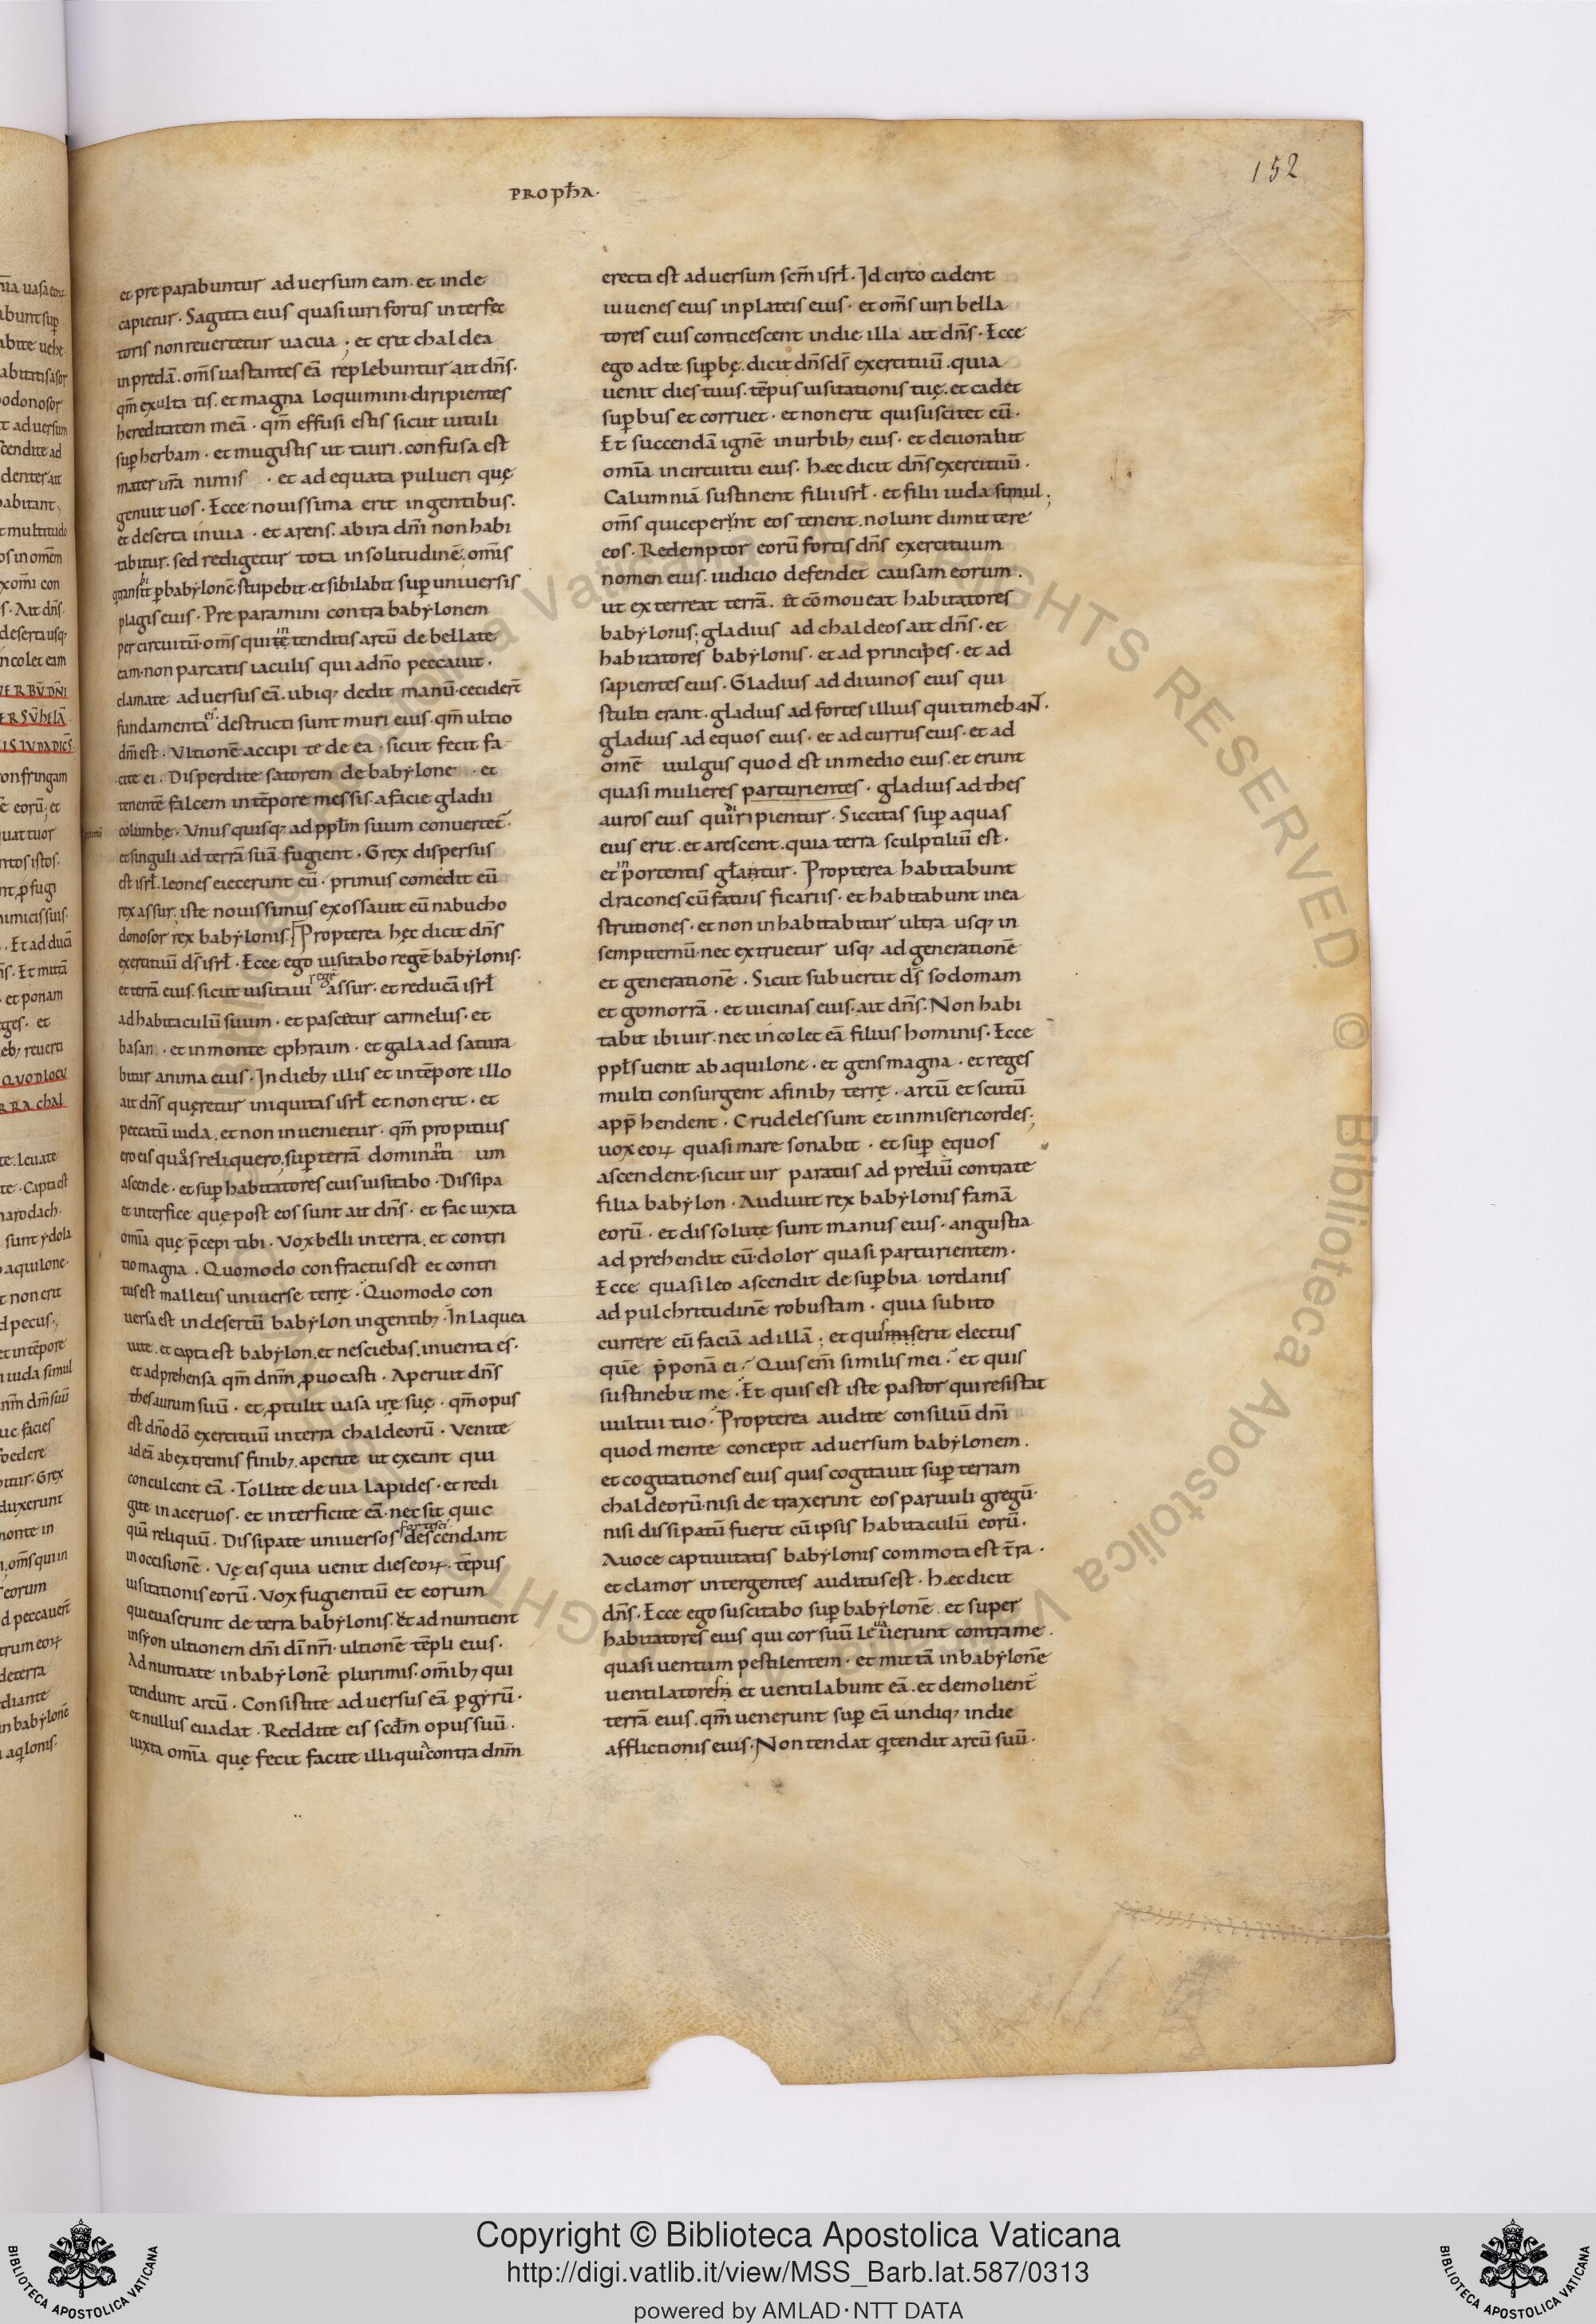 PROPħA·
152
et pre parabuntur adversum eam. et inde
capietur· Sagitta eius quasi uiri fortis interfec
toris non reuertetur uacua; et erit chaldea
in predā. om̄s uastantes eā replebuntur ait dn̄s·
qm̄ exultatis. et magna loquimini diripientes
hereditatem meā· qm̄ effusi estis sicut uituli
sup̱ herbam· et mugistis ut tauri. confusa est
mater ur̄a nimis· et adequata pulueri quę
genuit uos· Ecce nouissima erit in gentibus·
et deserta inuia· et arens. ab ira dn̄i non habi
tabitur. sed redigetur tota in solitudinē. omīs
qui transit ꝑ babẏlonē stupebit· et sibilabit sup̱ uniuersis
plagis eius· Preparamini contra babẏlonem
per circuitū· om̄s qui tenditis arcū debellate
eam· non parcatis iaculis qui a dn̄o peccauit·
clamate aduersus eā. ubiq; dedit manū· ceciderт̄
fundamenta ei' destructi sunt muri eius· qm̄ ultio
dn̄i est· Vltionē accipite de ea· sicut fecit fa
cite ei· Disperdite satorem de babẏlone· et
tenentē falcem in tēpore messis· a facie gladii
columbę· Vnus quisq; ad ppl̄m suum conuerteт̄·
et singuli ad terrā suā fugient· Grex dispersus
est isrł. leones eiecerunt eū· primus comedit eū
rex assur; iste nouissimus exossauit eū nabucho
donosor rex babẏlonis· Propterea hęc dicit dn̄s
exercituū ds̄ isrł· Ecce ego uisitabo regē babẏlonis·
et terrā eius. sicut uisitaui regē assur· et reducā isrł
ad habitaculū suum· et pascetur carmelus· et
basan· et in monte ephraim· et galaad satura
bitur anima eius· In dieb; illis et in tēpore illo
ait dn̄s queretur iniquitas isrł et non erit· et
peccatū iuda. et non inuenietur· qm̄ propitius
ero eis quas reliquero; sup̱ terrā dominanti um
ascende· et sup̱ habitatores eius uisitabo· Dissipa
et interfice quę post eos sunt ait dn̄s· et fac iuxta
omīa quę p̄cepi tibi· Vox belli in terra. et contri
tio magna· Quomodo confractus est et contri
tus est malleus uniuerse terrę· Quomodo con
uersa est in desertū babẏlon in gentib;· In laquea
uite. et capta est babẏlon. et nesciebas. inuenta es·
et adprehensa qm̄ dnm̄ ꝓuocasti· Aperuit dn̄s
thesaurum suū· et ꝓtulit uasa irę suę· qm̄ opus
est dn̄o dō exercituū in terra chaldeorū· Venite
ad eā ab extremis finib;. aperite ut exeant qui
conculcent eā· Tollite de uia lapides· et redi
gite in aceruos· et interficite eā· nec sit quic
quā reliquū· Dissipate uniuersos fortes ei' descendant
in occisionē· Vę eis quia uenit dies eoꝝ· tēpus
uisitationis eorū· Vox fugientiū et eorum
qui euaserunt de terra babẏlonis· et adnuntient
in sẏon ultionem dn̄i dī nr̄i· ultionē tēpli eius·
Adnuntiate in babẏlonē plurimis· omīb; qui
tendunt arcū· Consistite aduersus eā ꝑ gẏrū·
et nullus euadat· Reddite eis scd̄m opus suū·
iuxta omīa quę fecit facite illi· quia contra dnm̄
erecta est adversum scm̄ isrł· Idcirco cadent
iuuenes eius in plateis eius· et om̄s uiri bella
tores eius conticescent in die illa ait dn̄s· Ecce
ego ad te sup̱bę. dicit dn̄s ds̄ exercituū. quia
uenit dies tuus. tēpus uisitationis tuę. et cadet
sup̱bus et corruet· et non erit qui suscitet eū·
Et succendā ignē in urbib; eius· et deuorabit
omīa in circuitu eius· hæc dicit dn̄s exercituū·
Calumniā sustinent filii isrł· et filii iuda simul;
om̄s qui ceperunt eos tenent. nolunt dimittere
eos· Redemptor eorū fortis dn̄s exercituum
nomen eius. iudicio defendet causam eorum·
ut exterreat terrā. et cōmoueat habitatores
babẏlonis; gladius ad chaldeos ait dn̄s· et
habitatores babẏlonis· et ad principes· et ad
sapientes eius· Gladius ad diuinos eius qui
stulti erant· gladius ad fortes illius qui timebanт̄·
gladius ad equos eius· et ad currus eius· et ad
omē uulgus quod est in medio eius. et erunt
quasi mulieres parturientes· gladius ad thes
auros eius qui diripientur· Siccitas sup̱ aquas
eius erit· et arescent. quia terra sculptiliū est·
et in portentis głantur· Propterea habitabunt
dracones cū fatuis ficariis· et habitabunt in ea
strutiones· et non inhabitabitur ultra usq; in
sempiternū· nec extruetur usq; ad generationē
et generationē· Sicut subuertit ds̄ sodomam
et gomorrā· et uicinas eius· ait dn̄s· Non habi
tabit ibi uir· nec incolet eā filius hominis· Ecce
ppłs uenit ab aquilone· et gens magna· et reges
multi consurgent a finib; terrę· arcū et scutū
app̄hendent· Crudeles sunt et inmisericordes;
uox eoꝝ quasi mare sonabit· et sup̱ equos
ascendent· sicut uir paratus ad preliū contra te
filia babẏlon· Audiuit rex babẏlonis famā
eorū· et dissolutę sunt manus eius· angustia
adprehendit eū· dolor quasi parturientem·
Ecce quasi leo ascendit de sup̱bia iordanis
ad pulchritudinē robustam· quia subito
currere eū faciā ad illā; et quis erit electus
quē p̄ponā ei· Quis em̄ similis mei· et quis
sustinebit me· Et quis est iste pastor qui resistat
uultui tuo· Propterea audite consiliū dn̄i
quod mente concepit aduersum babẏlonem·
et cogitationes eius quis cogitauit sup̱ terram
chaldeorū· nisi detraxerint eos paruuli gregū·
nisi dissipatū fuerit cū ipsis habitaculū eorū·
A uoce captiuitatis babẏlonis commota est t̄ra·
et clamor inter gentes auditus est· hæc dicit
dn̄s· Ecce ego suscitabo sup̱ babẏlonē. et super
habitatores eius qui cor suū leuauerunt contra me·
quasi uentum pestilentem· et mittā in babẏlonē
uentilatores et uentilabunt eā. et demolienт̄
terrā eius. qm̄ uenerunt sup̱ eā undiq; in die
afflictionis eius· Non tendat q̄ tendit arcū suū·
Copyright © Biblioteca Apostolica Vaticana
http://digi.vatlib.it/view/MSS_Barb.lat.587/0313
powered by AMLAD·NTT DATA
BIBLIOTECA APOSTOLICA VATICANA
BIBLIOTECA APOSTOLICA VATICANA